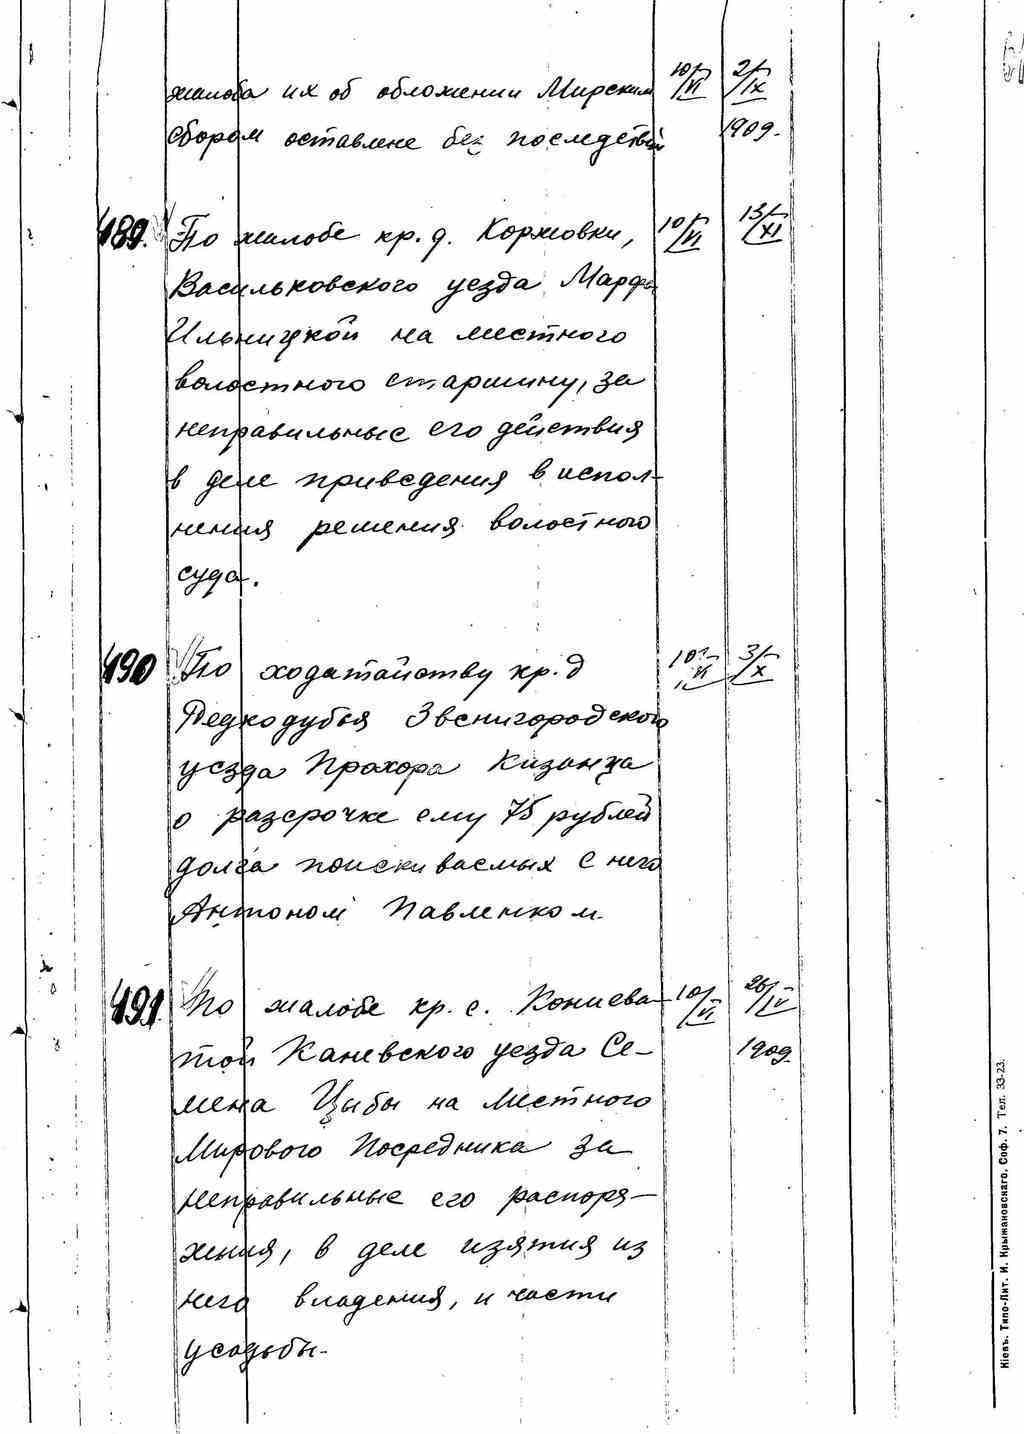 жалоба их об обложении Мирским 10/VI 2/IX
сбором оставлене без последствий 1909.
489. По жалобе кр. д. Коржовки, 10/VI 13/XI
Васильковского уезда Марфы
Ильницкой на местного
волостного старшину, за
неправильные его действия
в деле приведения в испол-
нения решения волостного
суда.
490 По ходатайству кр. д 10/VI 3/X
Редкодубья Звенигородского
уезда Прохора Кизанца
о разсрочке ему 75 рублей
долга поискиваемых с него
Антоном Павленком.
491. По жалобе кр. с. Кониева- 10/VI 26/IV
той Каневского уезда Се- 1909.
мена Цыбы на местного
Мирового Посредника за
неправильные его распоря-
жения, в деле изятия из
него владения, и части
усадьбы.
Кіевъ. Типо-Лит. И. Крыжановскаго, Соф. 7. Тел. 33-23.